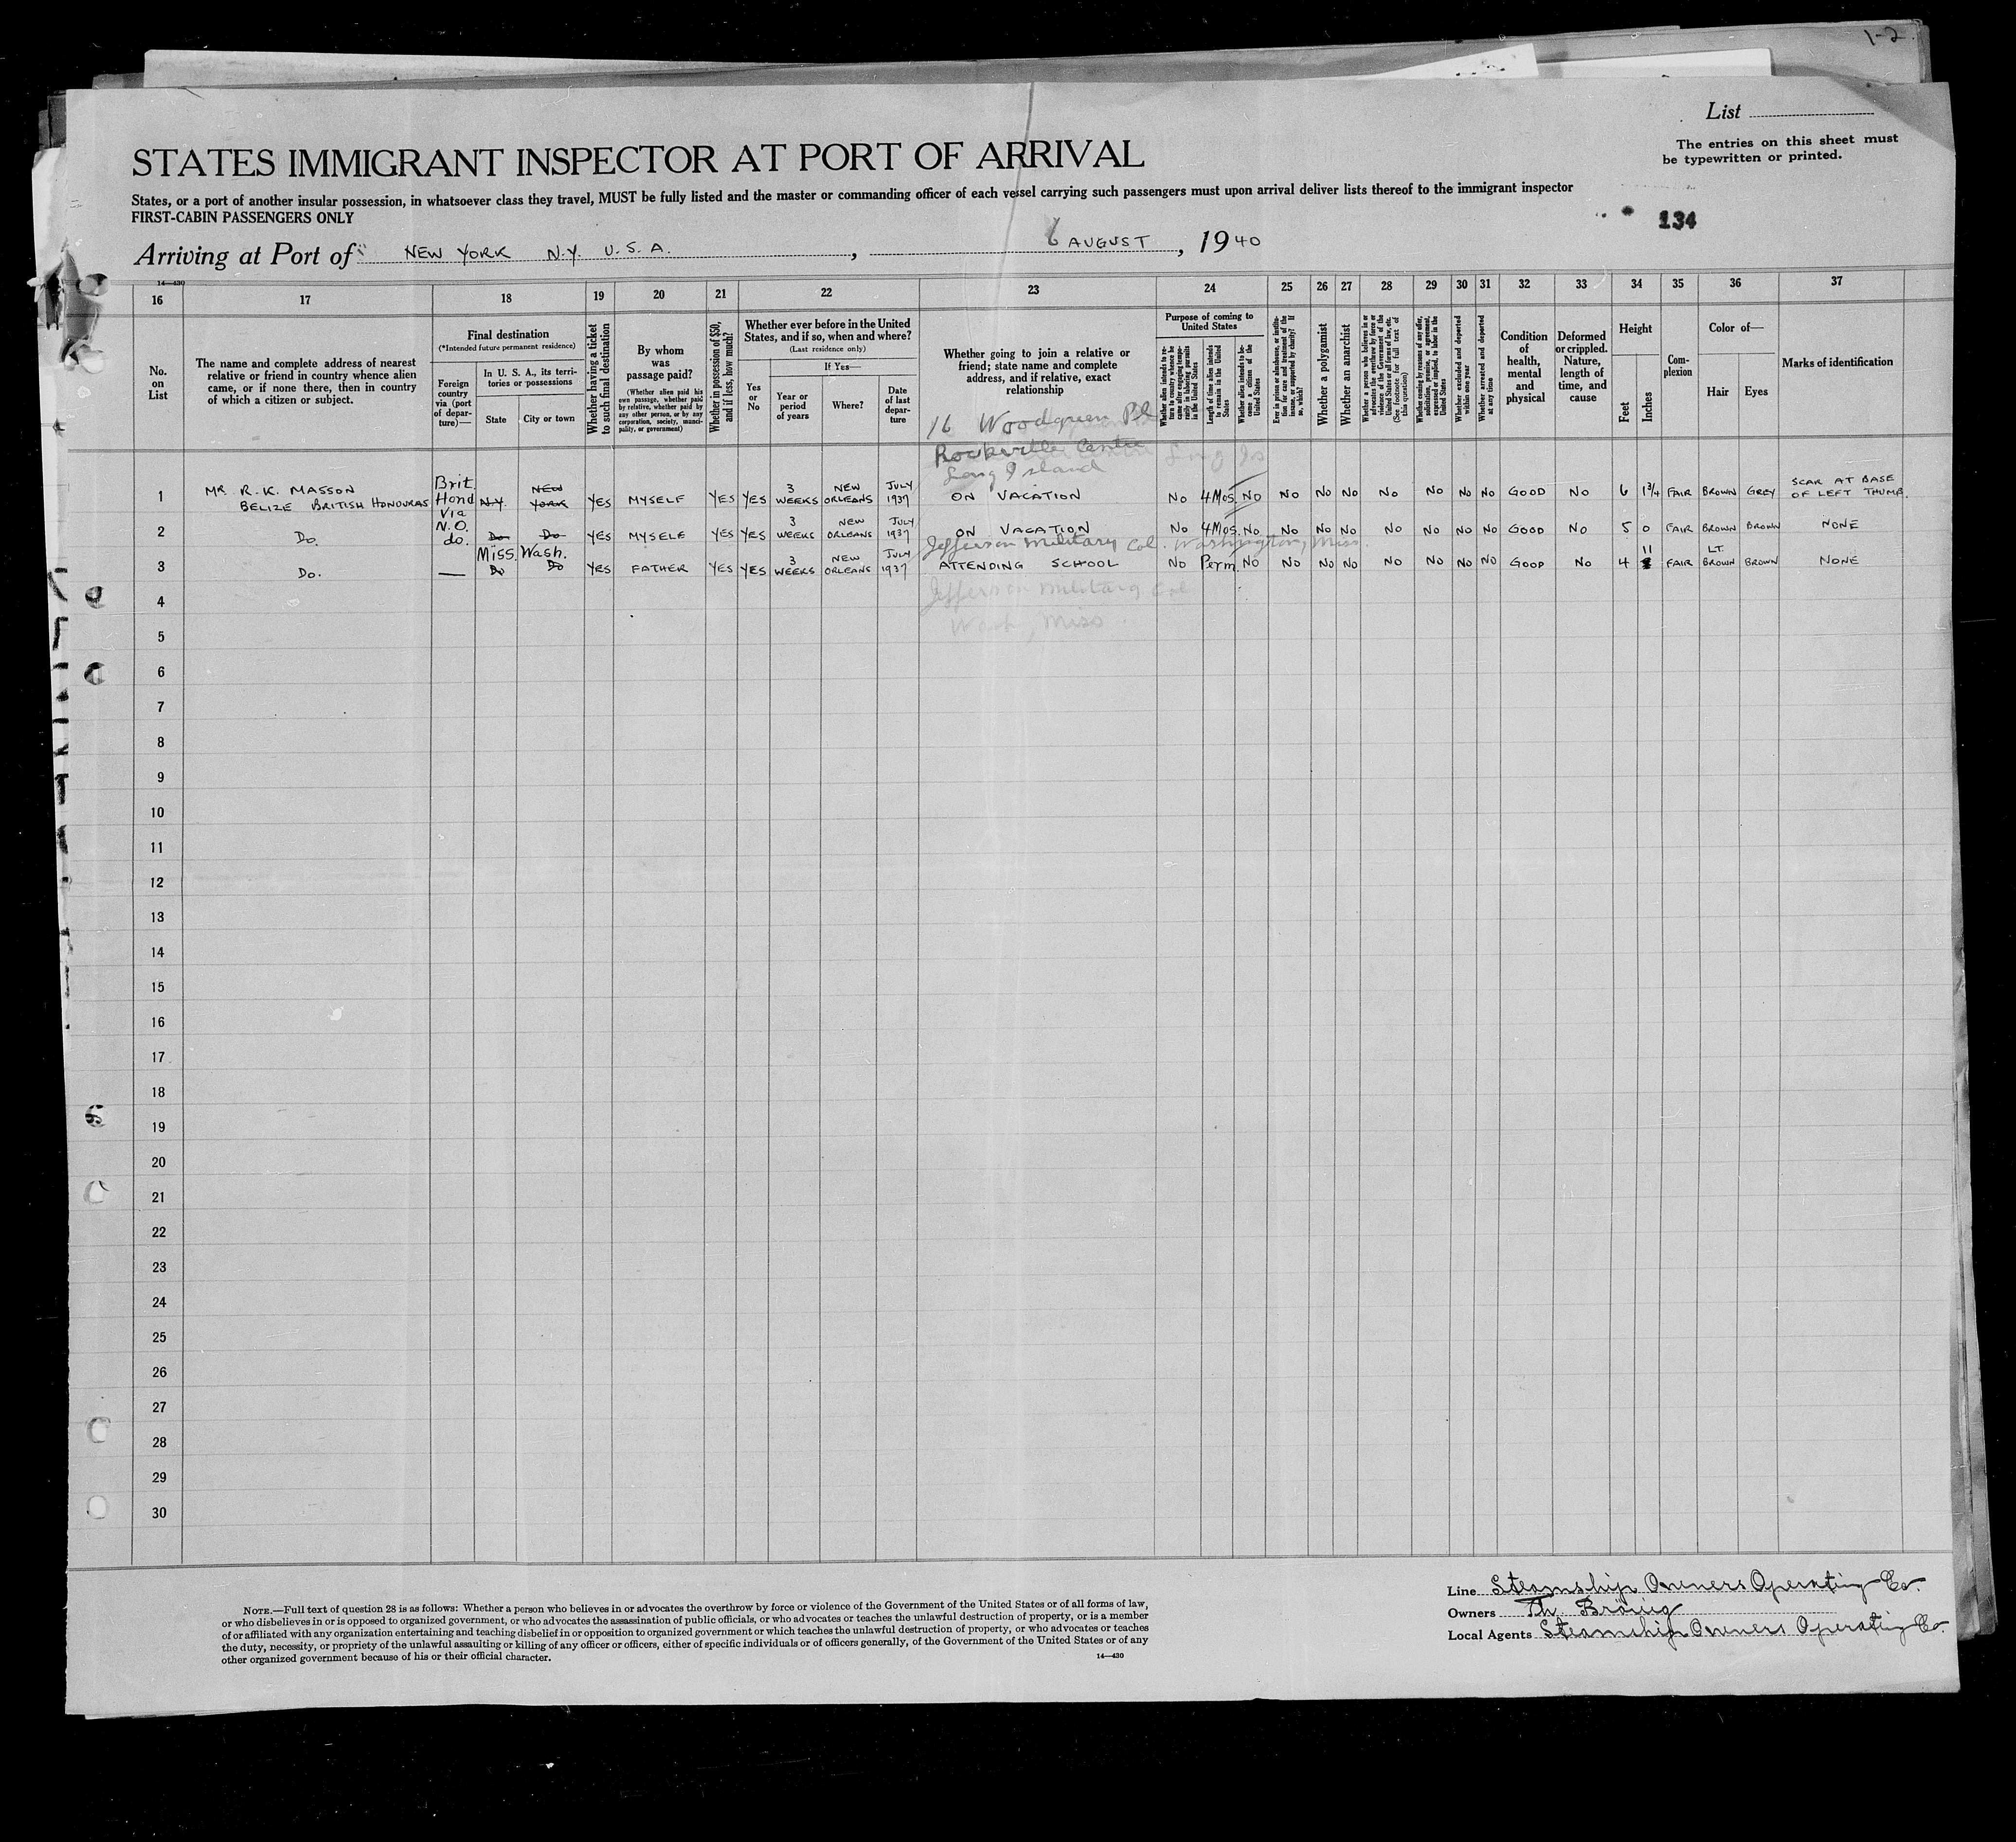 1-2
List
The entries on this sheet must
be typewritten or printed.
STATES IMMIGRANT INSPECTOR AT PORT OF ARRIVAL
States, or a port of another insular possession, in whatsoever class they travel, MUST be fully listed and the master or commanding officer of each vessel carrying such passengers must upon arrival deliver lists thereof to the immigrant inspector
FIRST-CABIN PASSENGERS ONLY
134
Arriving at Port of NEW YORK N.Y. U.S.A. , 6 AUGUST , 1940
14—430
16 17 18 19 20 21 22 23 24 25 26 27 28 29 30 31 32 33 34 35 36 37
No. on List
The name and complete address of nearest
relative or friend in country whence alien
came, or if none there, then in country
of which a citizen or subject.
Final destination
(*Intended future permanent residence)
Foreign country via (port of departure)—
In U. S. A., its territories or possessions
State
City or town
Whether having a ticket to such final destination
By whom was passage paid?
(Whether alien paid his own passage, whether paid by relative, whether paid by any other person, or by any corporation, society, municipality, or government)
Whether in possession of $50, and if less, how much?
Whether ever before in the United States, and if so, when and where?
(Last residence only)
Yes or No
If Yes—
Year or period of years
Where?
Date of last departure
Whether going to join a relative or
friend; state name and complete
address, and if relative, exact
relationship
Purpose of coming to United States
Whether alien intends to return to country whence he came after engaging temporarily in laboring pursuits in the United States
Length of time alien intends to remain in the United States
Whether alien intends to become a citizen of the United States
Ever in prison or almshouse, or institution for care and treatment of the insane, or supported by charity? If so, which?
Whether a polygamist
Whether an anarchist
Whether a person who believes in or advocates the overthrow by force or violence of the Government of the United States or all forms of law, etc. (See footnote for full text of this question)
Whether coming by reasons of any offer, solicitation, promise, or agreement, expressed or implied, to labor in the United States
Whether excluded and deported within one year
Whether arrested and deported at any time
Condition of health, mental and physical
Deformed or crippled. Nature, length of time, and cause
Height
Feet
Inches
Complexion
Color of—
Hair
Eyes
Marks of identification
16 Woodgreen Pl
Rockville Centre Long Is
Long Island
1 MR R.K. MASSON BELIZE BRITISH HONDURAS Brit. Hond via N.O. N.Y. NEW YORK YES MYSELF YES YES 3 WEEKS NEW ORLEANS JULY 1937 ON VACATION No 4 Mos. No No No No No No No No GOOD No 6 1¾ FAIR BROWN GREY SCAR AT BASE OF LEFT THUMB.
2 Do. do. Do Do YES MYSELF YES YES 3 WEEKS NEW ORLEANS JULY 1937 ON VACATION No 4 Mos. No No No No No No No No GOOD No 5 0 FAIR BROWN BROWN NONE
Jefferson Military Col. Washington, Miss.
3 Do. — Miss. Do Wash. Do YES FATHER YES YES 3 WEEKS NEW ORLEANS JULY 1937 ATTENDING SCHOOL No Perm No No No No No No No No GOOD No 4 11 FAIR LT. BROWN BROWN NONE
Jefferson Military Col
Wash, Miss
4
5
6
7
8
9
10
11
12
13
14
15
16
17
18
19
20
21
22
23
24
25
26
27
28
29
30
NOTE.—Full text of question 28 is as follows: Whether a person who believes in or advocates the overthrow by force or violence of the Government of the United States or of all forms of law,
or who disbelieves in or is opposed to organized government, or who advocates the assassination of public officials, or who advocates or teaches the unlawful destruction of property, or is a member
of or affiliated with any organization entertaining and teaching disbelief in or opposition to organized government or which teaches the unlawful destruction of property, or who advocates or teaches
the duty, necessity, or propriety of the unlawful assaulting or killing of any officer or officers, either of specific individuals or of officers generally, of the Government of the United States or of any
other organized government because of his or their official character.
14—430
Line Steamship Owners Operating Co.
Owners Th. Bröuig
Local Agents Steamship Owners Operating Co.